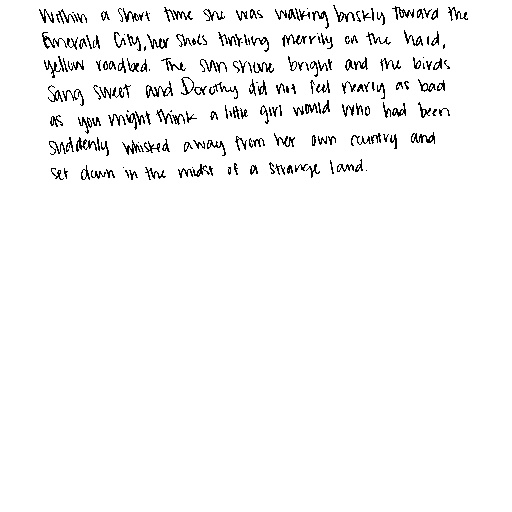 Within a short time she was walking briskly toward the
Emerald City, her shoes tinkling merrily on the hard,
yellow roadbed. The sun shone bright and the birds
sang sweet and Dorothy did not feel nearly as bad
as you might think a little girl would who had been
suddenly whisked away from her own country and
set down in the midst of a strange land.